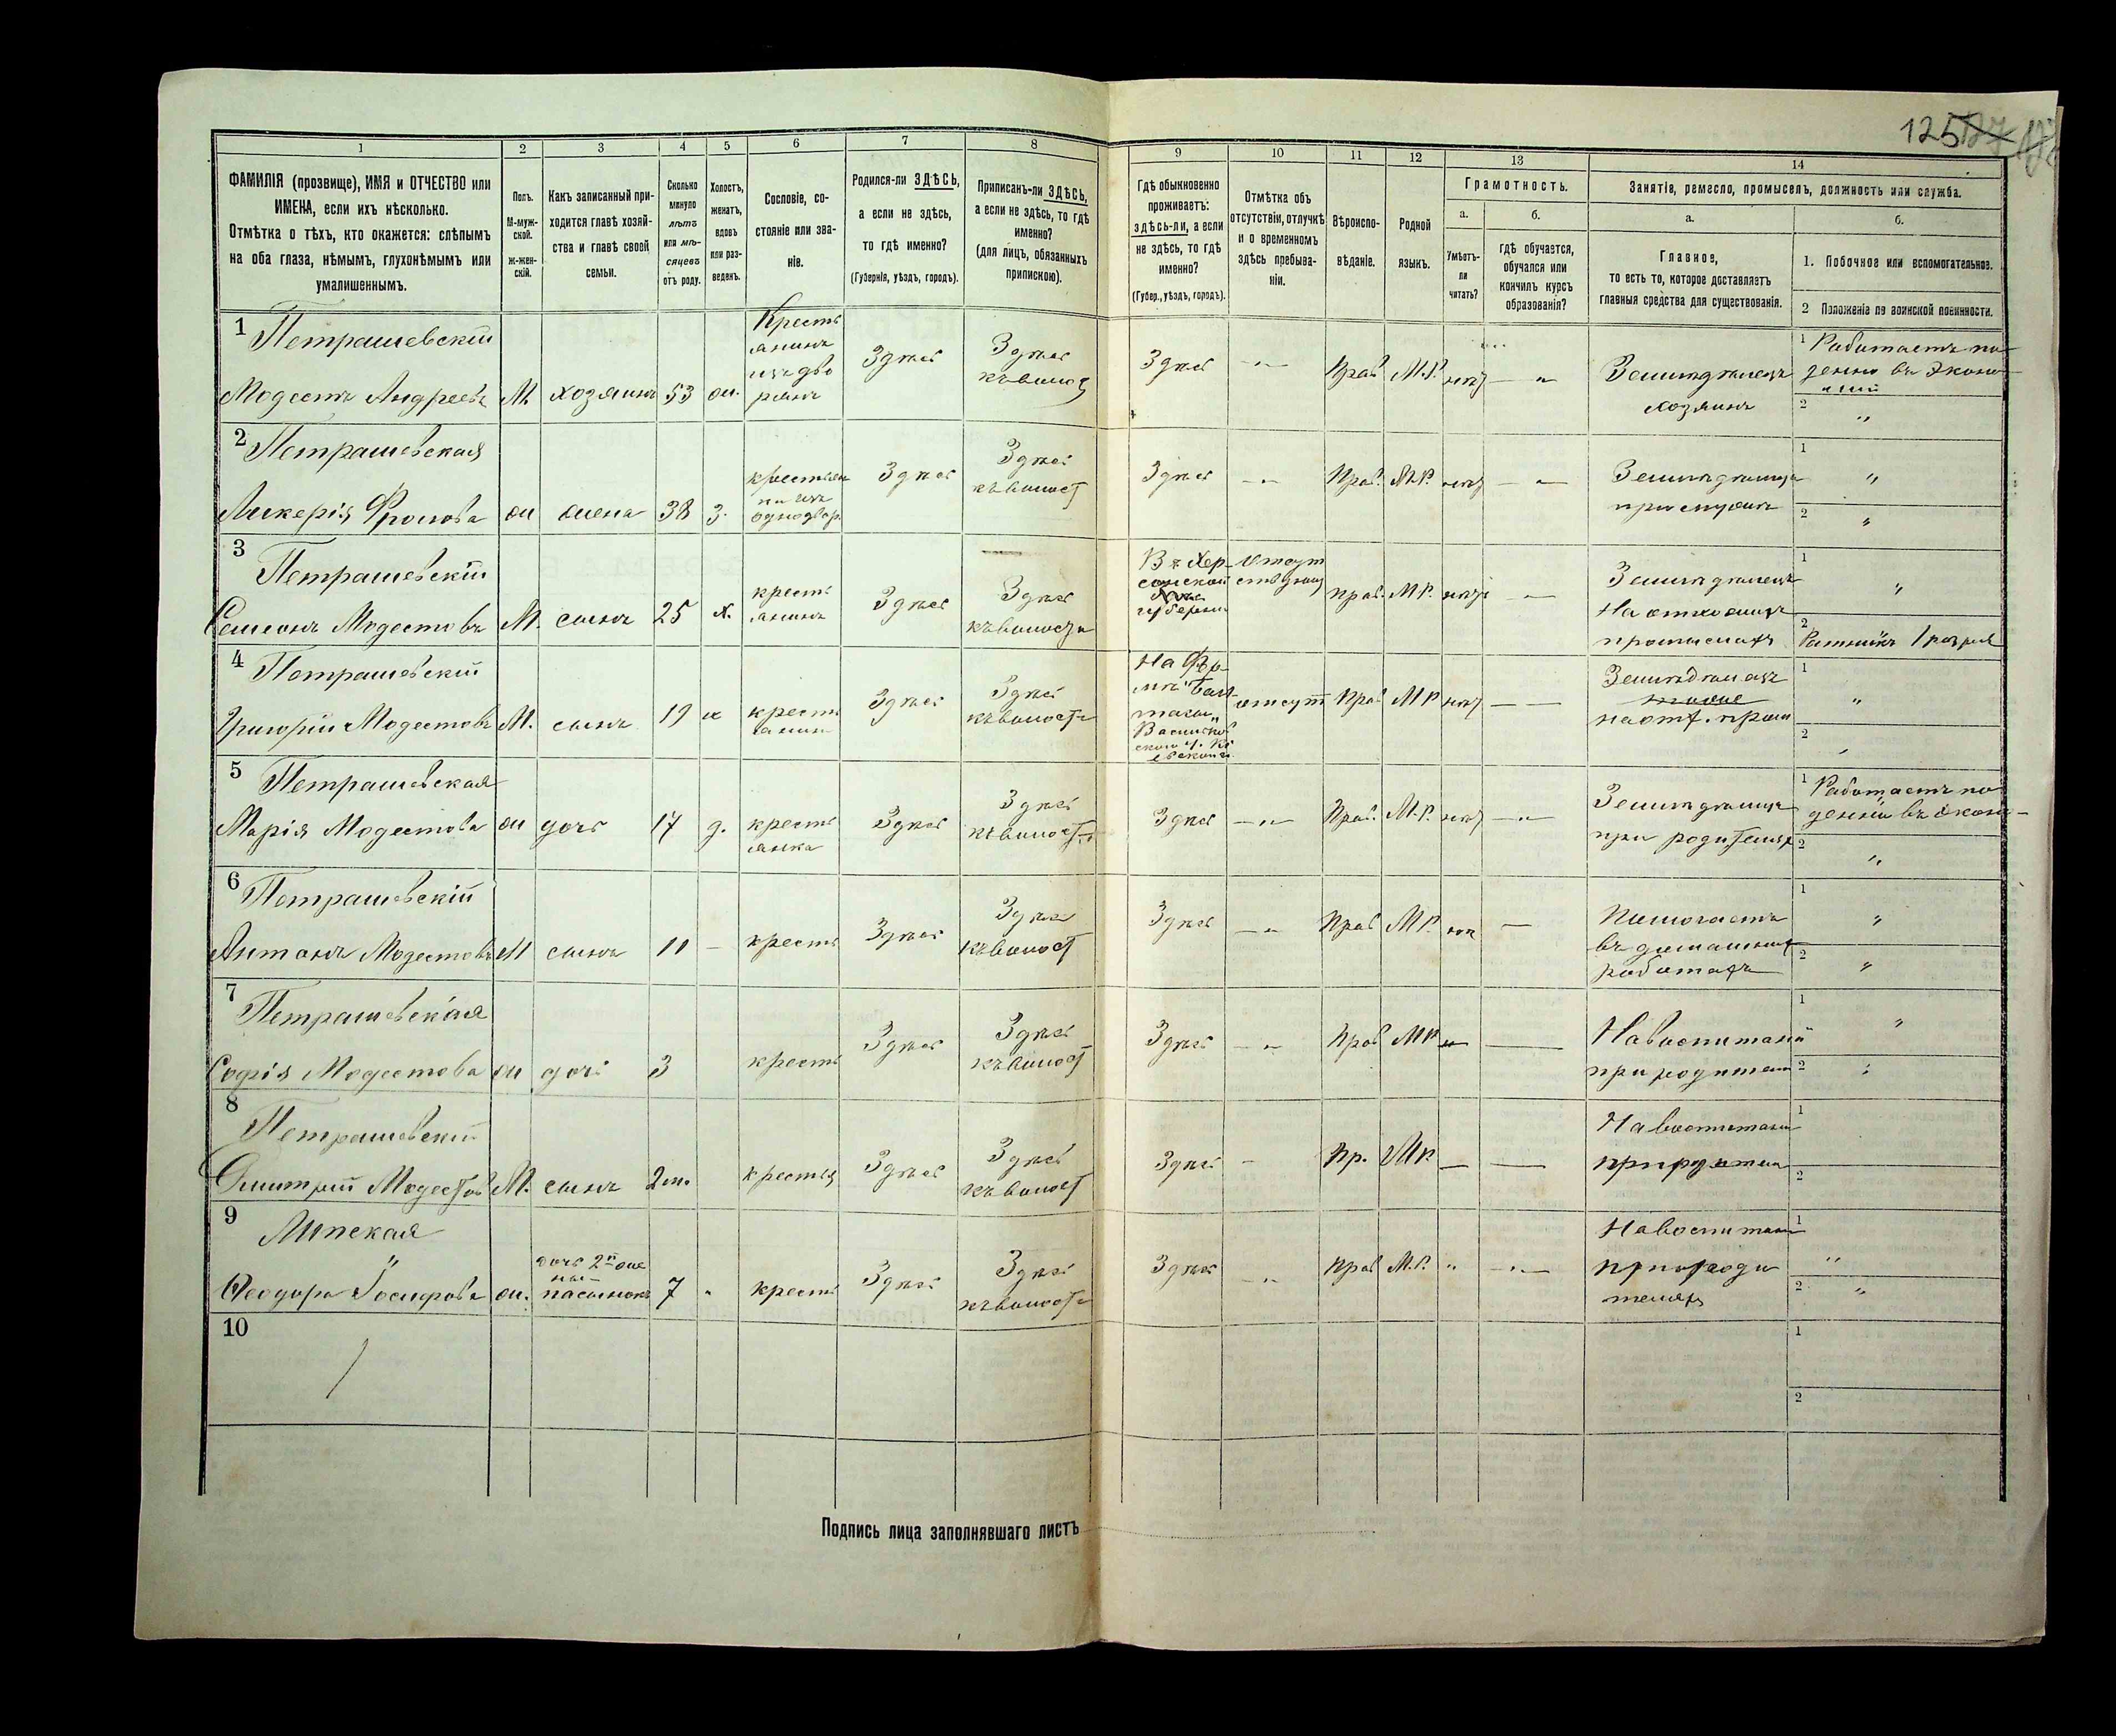 125
1
2
3
4
5
6
7
8
ФАМИЛІЯ (прозвище), ИМЯ и ОТЧЕСТВО или
ИМЕНА, если ихъ нѣсколько.
Отмѣтка о тѣхъ, кто окажется: слѣпымъ
на оба глаза, нѣмымъ, глухонѣмымъ или
умалишеннымъ.
Полъ.
М-муж-
ской.
Ж-жен-
скій.
Какъ записанный при-
ходится главѣ хозяй-
ства и главѣ своей
семьи.
Сколько
минуло
лѣтъ
или мѣ-
сяцевъ
отъ роду.
Холостъ,
женатъ,
вдовъ
или раз-
веденъ.
Сословіе, со-
стояніе или зва-
ніе.
Родился-ли ЗДѢСЬ,
а если не здѣсь,
то гдѣ именно?
(Губернія, уѣздъ, городъ).
Приписанъ-ли ЗДѢСЬ,
а если не здѣсь, то гдѣ
именно?
(для лицъ, обязанныхъ
припискою).
9
10
11
12
13
14
Гдѣ обыкновенно
проживаетъ:
здѣсь-ли, а если
не здѣсь, то гдѣ
именно?
(Губер., уѣздъ, городъ).
Отмѣтка объ
отсутствіи, отлучкѣ
и о временномъ
здѣсь пребыва-
ніи.
Вѣроиспо-
вѣданіе.
Родной
языкъ.
Грамотность.
а.
б.
Умѣетъ-
ли
читать?
гдѣ обучается,
обучался или
кончилъ курсъ
образованія?
Занятіе, ремесло, промыселъ, должность или служба.
а.
б.
Главное,
то есть то, которое доставляетъ
главныя средства для существованія.
1. Побочное или вспомогательное.
2 Положеніе по воинской повинности.
1
Петрашевскій
Модестъ Андреевъ
М.
хозяинъ
53
ж.
Кресть
янинъ
изъ дво
рянъ
Здѣсь
Здѣсь
къ волос
Здѣсь
Прав.
М.Р.
нѣт
Земледѣлецъ
хозяинъ
1 Работаетъ по
денно въ эконо
міи
2 "
2
Петрашевская
Фролова
ж
жена
38
З.
крестьян
ка изъ
однодвор.
Здѣсь
Здѣсь
къ волост
Здѣсь
Прав.
М.Р.
нѣт
Земледѣлица
при мужѣ
1 "
2 "
3
Петрашевскій
Симеонъ Модестовъ
М.
сынъ
25
х.
кресть
янинъ
Здѣсь
Здѣсь
къ волости
Въ Хер
сонской
губерни
Отсут
прав.
М.Р.
нѣт
Земледѣлецъ
На отхожихъ
промыслахъ
1 "
2 Ратникъ 1 разряд
4
Петрашевскій
Григорій Модестовъ
М.
сынъ
19
х
кресть
янин
Здѣсь
Здѣсь
къ волости
На
отсут
Прав
М.Р.
нѣт
Земледѣлецъ
на отх. пром
1 "
2
5
Петрашевская
Марія Модестова
ж
дочь
17
д.
кресть
янка
Здѣсь
Здѣсь
къ волости
Здѣсь
Прав.
М.Р.
нѣт
Земледѣлица
при родителях
1 Работаетъ по
денно въ эконо
2 "
6
Петрашевскій
Антонъ Модестовъ
М
сынъ
11
кресть
Здѣсь
Здѣсь
къ волост
Здѣсь
Прав
М.Р.
нѣт
Помогаетъ
въ домашних
работахъ
1 "
2 "
7
Петрашевская
Софія Модестова
ж
дочь
3
кресть
Здѣсь
Здѣсь
къ волост
Здѣсь
Прав
М.Р.
На воспитаніи
при родител
1 "
2
8
Петрашевскій
Димитрій Модестов
М.
сынъ
2 м.
крестья
Здѣсь
Здѣсь
къ волост
Здѣсь
Пр.
М.Р.
На воспитани
при родител
1
2
9
Липская
Феодора Іосифова
ж.
дочь 2й же
ны
7
кресть
Здѣсь
Здѣсь
къ волости
Здѣсь
Прав
М.Р.
На воспитан
при роди
теляхъ
1 "
2 "
10
1
2
Подпись лица заполнявшаго листъ